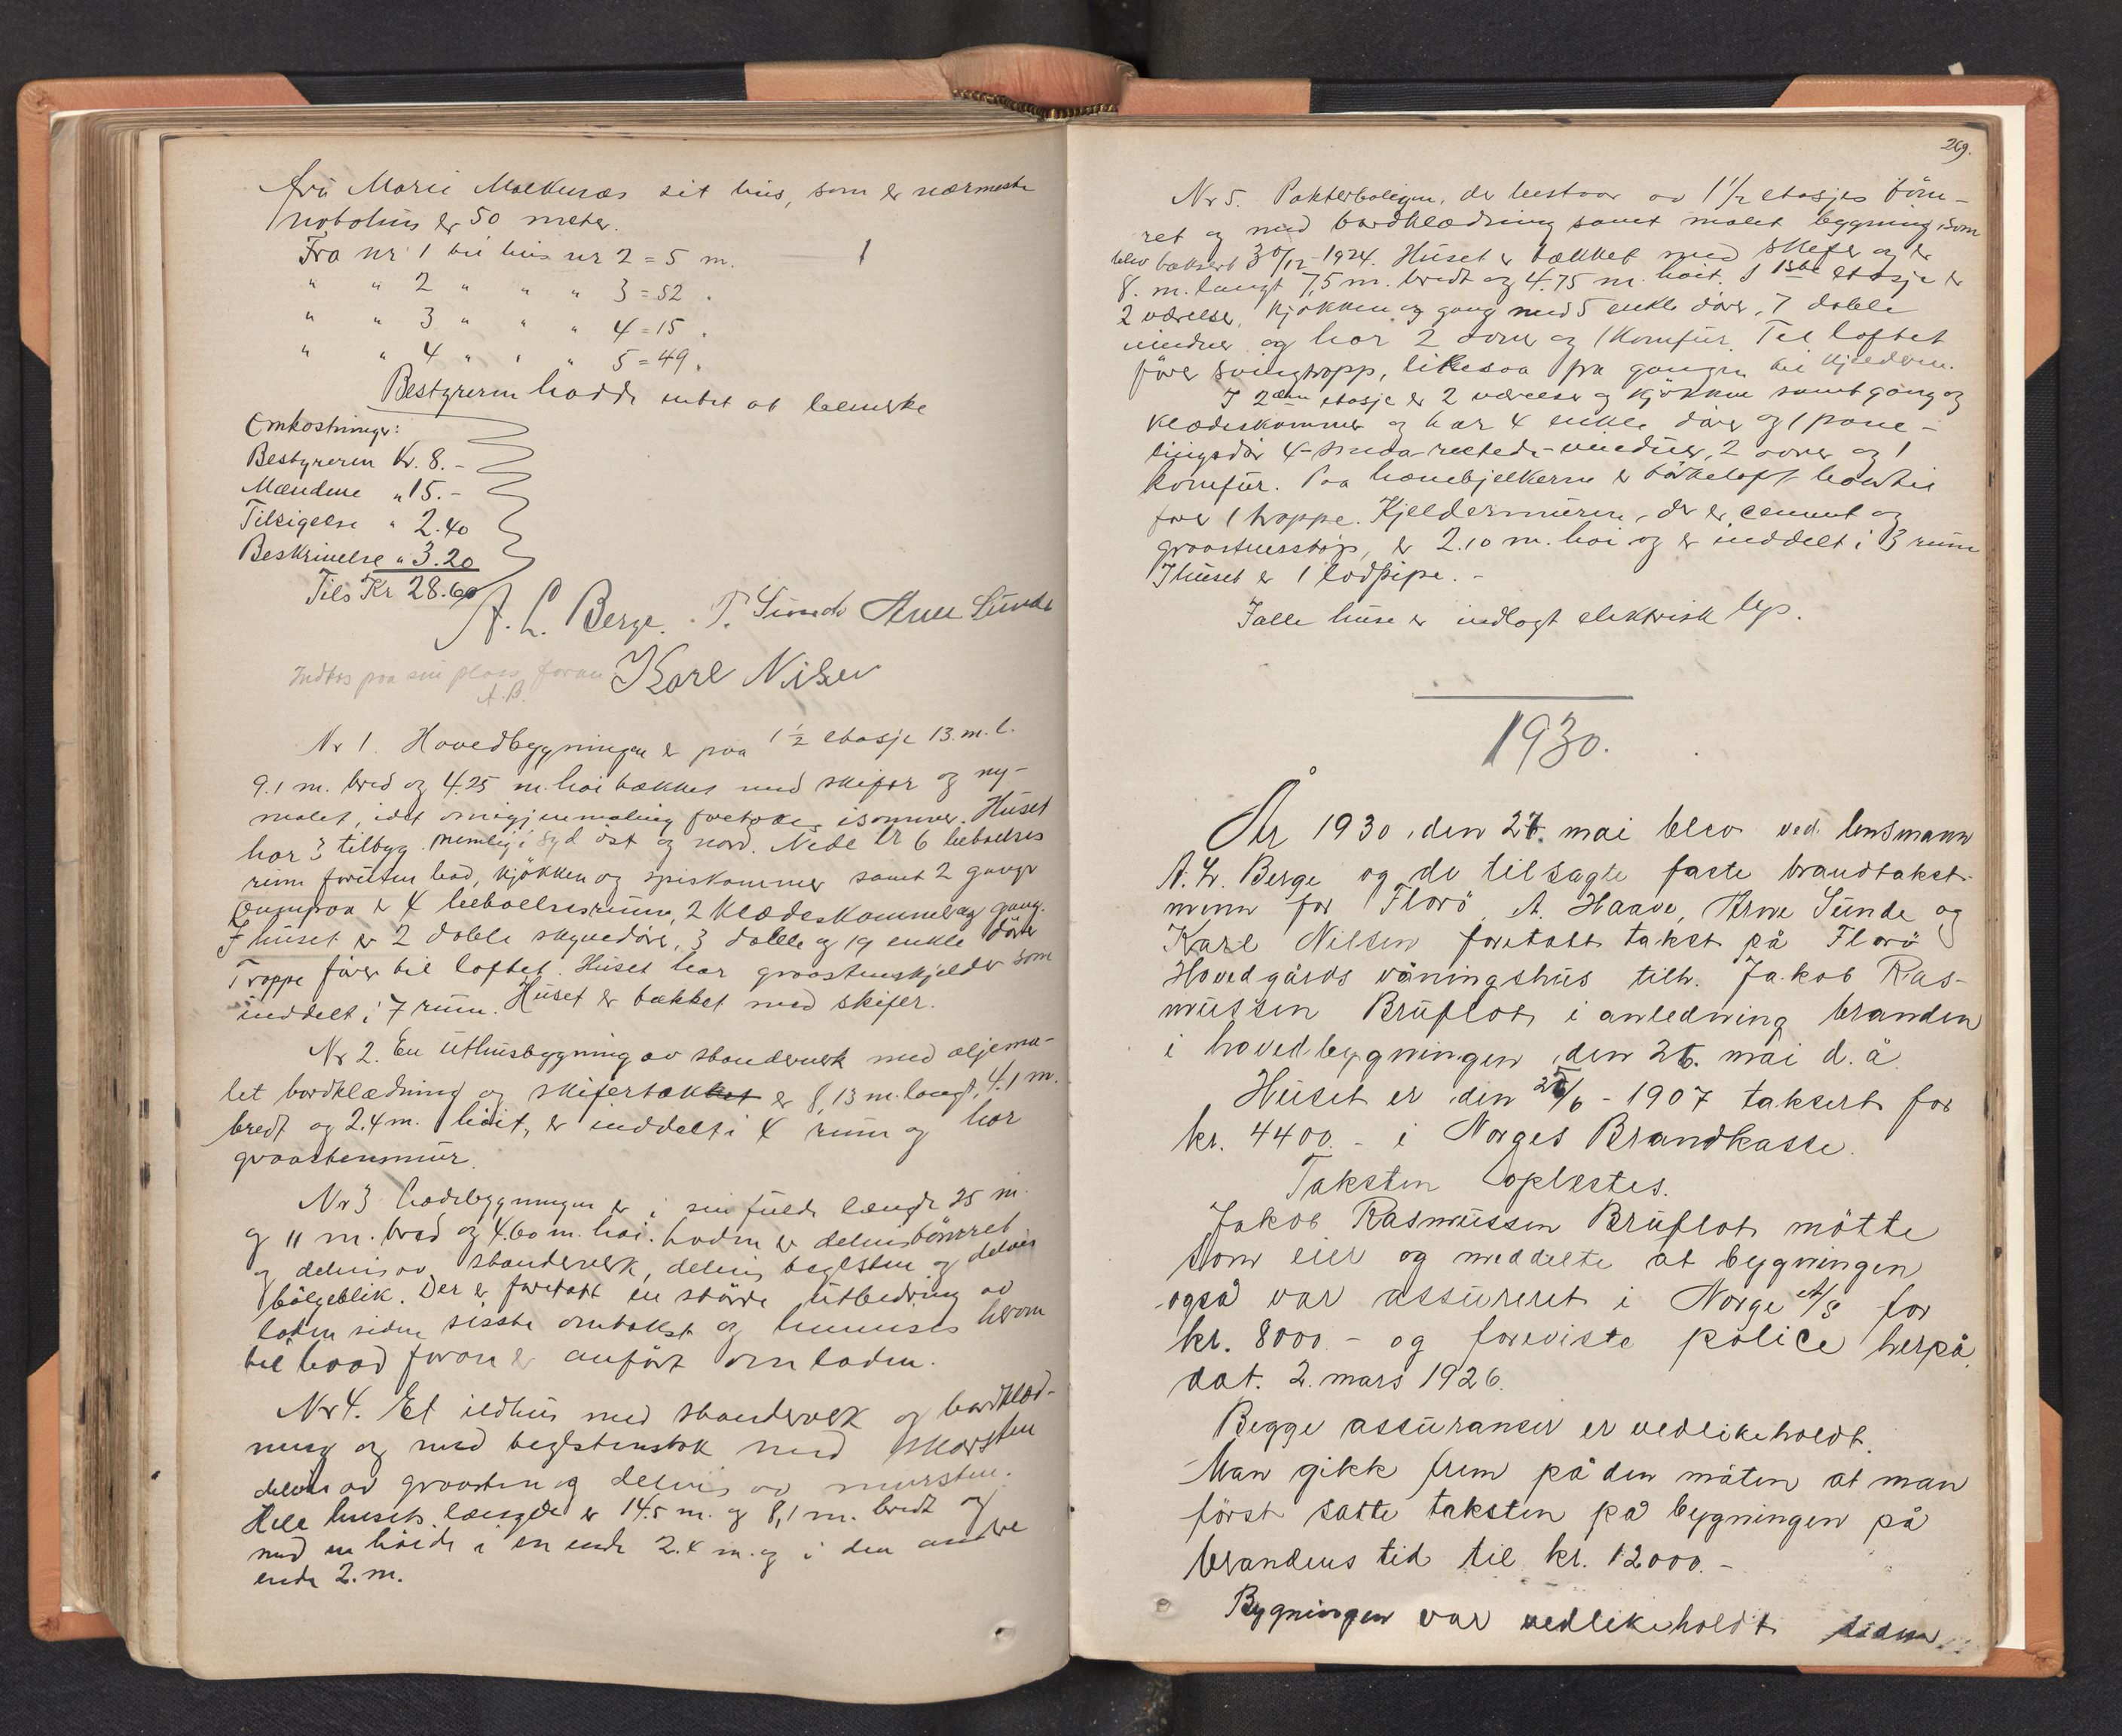 fru Marie Molkenæs sit hus, som er nærmeste
nabohus er 50 meter.
Fra nr 1 til hus nr 2 = 5 m.
" " 2 " " " 3 = 52 "
" " 3 " " " 4 = 15 "
" " 4 " " " 5 = 49 "
Bestyreren hadde intet at bemerke
Omkostninger:
Bestyreren Kr. 8.-
Mændene " 15.-
Tilsigelse " 2.40
Beskrivelse " 3.20
Tils Kr 28.60
A. L. Berge. T. Sunde Arne Sunde
Indtas paa sin plass foran Karl Nilsen
A.B.
Nr 1. Hovedbygningen er paa 1 1/2 etasje 13. m. l.
9.1 m. bred og 4.25 m. høi tækket med skifer og ny-
malet, idet omigjenmaling foretokes isommer. Huset
har 3 tilbyg. nemlig i syd øst og nord. Nede er 6 beboelses
rum foruten bad, kjøkken og spiskammer samt 2 ganger
Ovenpaa er 4 beboelsesrum, 2 klædeskammer og gang.
I huset er 2 doble skyvedøre, 3 doble og 19 enkle døre
Trappe fører til loftet. Huset har graastenskjelder som
inddelt i 7 rum. Huset er tækket med skifer.
Nr 2. En uthusbygning av standverk med oljema-
let bordklædning og skifertækket er 8,13 m. langt, 4.1 m.
bredt og 2.4 m. høit, er inddelt i 4 rum og har
graastensmur.
Nr 3. Ladebygningen er i sin fulde længde 25 m.
og 11 m. bred og 4.60 m. høi. Laden er delvis tømret
og delvis av standerverk, delvis teglsten og delvis
bølgeblik. Der er foretatt en større utbedring av
laden siden sisste omtakst og henvises herom
til hvad foran er anført om laden.
Nr 4. Et ildhus med standerverk og bordklæd-
ning og med teglstenstak med skorsten
delvis av graasten og delvis av mursten.
Hele husets længde er 14.5 m. og 8,1 m. bredt og
med en høide i en ende 2.4 m. og i den andre
ende 2. m.
269.
Nr 5. Pakterboligen, der bestaar av 1 1/2 etasjes tøm-
ret og med bordklædning samt malet bygning, som
blev taksert 30/12-1924. Huset er tækket med skifer og er
8. m. langt 7,5 m. bredt og 4.75 m. høit. I 1ste etasje er
2 værelser, kjøkken og gang med 5 enkle døre, 7 doble
vinduer og har 2 ovner og 1 komfur. Til loftet
fører svingtrapp, likesaa fra gangen til kjelderen.
I 2den etasje er 2 værelser og kjøkken samt gang og
klædeskammer og har 4 enkle døre og 1 pane-
lingsdør 4-smaa-rutede-vinduer, 2 ovner og 1
komfur. Paa hanebjelkerne er tørkeloft hvortil
fører 1 trappe. Kjeldermuren, der er cement og
graastensstøp, er 2.10 m. høi og er inddelt i 3 rum
I huset er 1 lodpipe. -
I alle huse er indlagt elektrisk lys.
1930.
År 1930, den 27. mai blev ved lensmann
A. L. Berge og de tilsagte faste brandtakst-
menn for Florø, A. Haave, Arne Sunde og
Karl Nilsen foretatt takst på Florø
Hovedgårds våningshus tilh. Jakob Ras-
mussen Bruflot i anledning branden
i hovedbygningen den 26. mai d. å.
Huset er den /6 - 1907 taksert for
kr. 4400.- i Norges Brandkasse.
Taksten oplestes.
Jakob Rasmussen Bruflot møtte
som eier og meddelte at bygningen
også var assureret i Norge A/S for
kr. 8000.- og foreviste police herpå
dat. 2. mars 1926.
Begge assuranser er vedlikeholdt.
Man gikk frem på den måten at man
først satte taksten på bygningen på
brandens tid til kr. 12000.-
Bygningen var vedlikeholdt siden